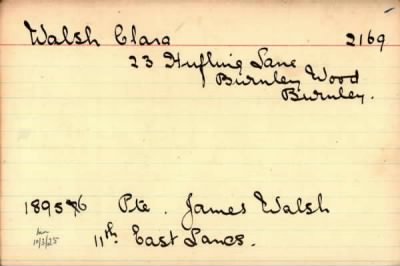 Walsh Clara 2169
23 Hufling Lane
Burnley Wood
Burnley.
189576 Pte. James Walsh
11th East Lancs.
10/3/25